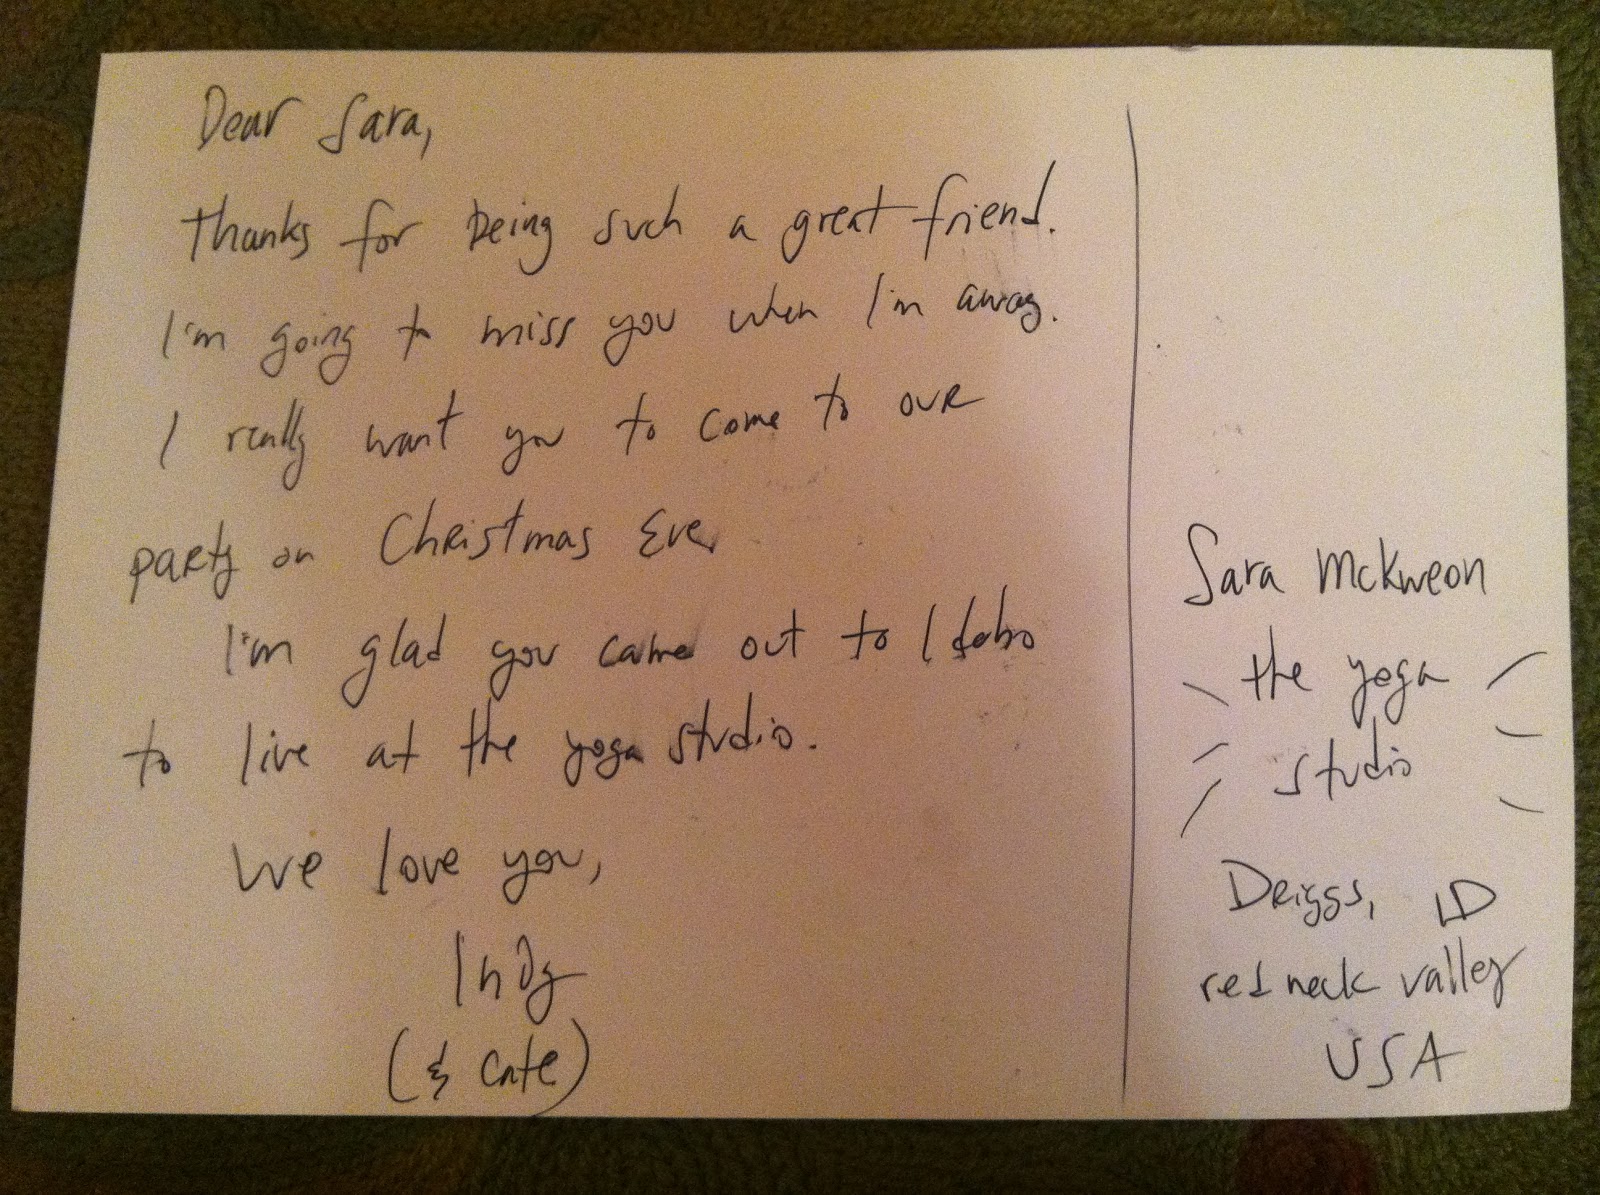 Dear Sara,
Thanks for being such a great friend.
I'm going to miss you when I'm away.
I really want you to come to our
party on Christmas Eve.
I'm glad you came out to Idaho
to live at the yoga studio.
We love you,
Indy
(& Cate)
Sara McKweon
the yoga
studio
Driggs, ID
red neck valley
USA